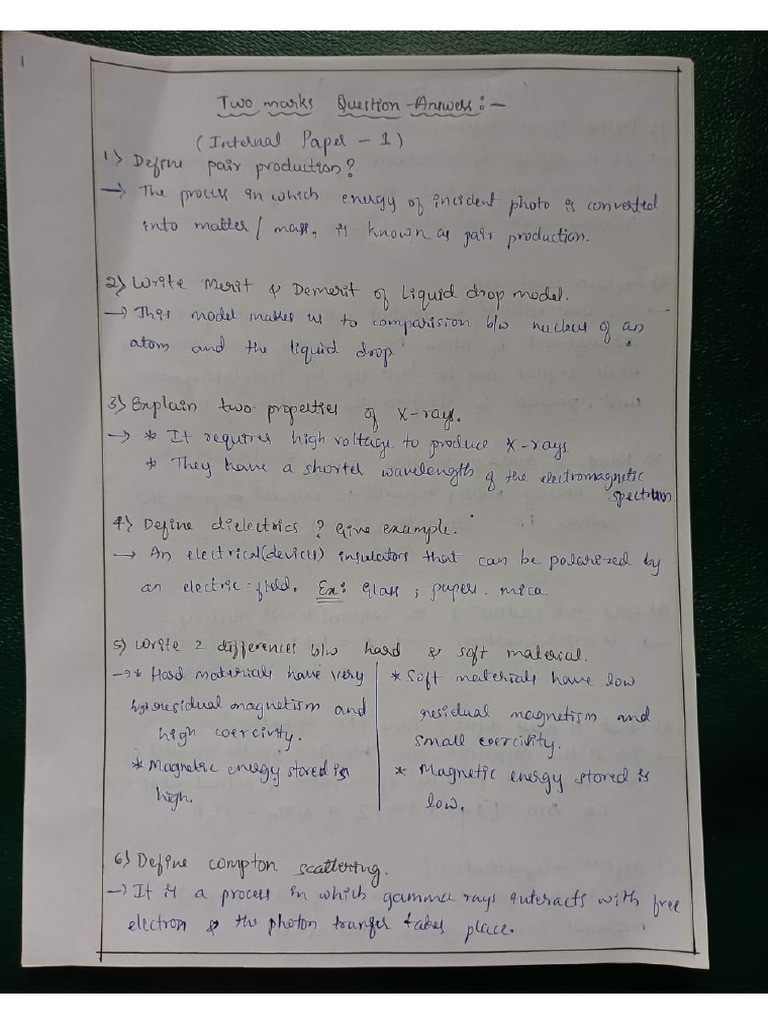 1
Two marks Question-Answers:-
(Internal Paper - 1)
1) Define pair production?
→ The process in which energy of incident photo is converted
into matter/mass, is known as pair production.
2) Write Merit & Demerit of liquid drop model.
→ This model makes us to comparision b/w nucleus of an
atom and the liquid drop
3) Explain two properties of X-rays.
→ * It requires high voltage to produce X-rays
* They have a shorter wavelength of the electromagnetic
spectrum
4) Define dielectrics? Give example.
→ An electrical(devices) insulators that can be polarized by
an electric-field. Ex: glass, papers. mica.
5) Write 2 differences b/w hard & soft material.
→ * Hard materials have very
residual magnetism and
high coercivity.
* Magnetic energy stored is
high.
* Soft materials have low
residual magnetism and
small coercivity.
* Magnetic energy stored is
low.
6) Define compton scattering.
→ It is a process in which gamma rays interacts with free
electron & the photon tranfer takes place.